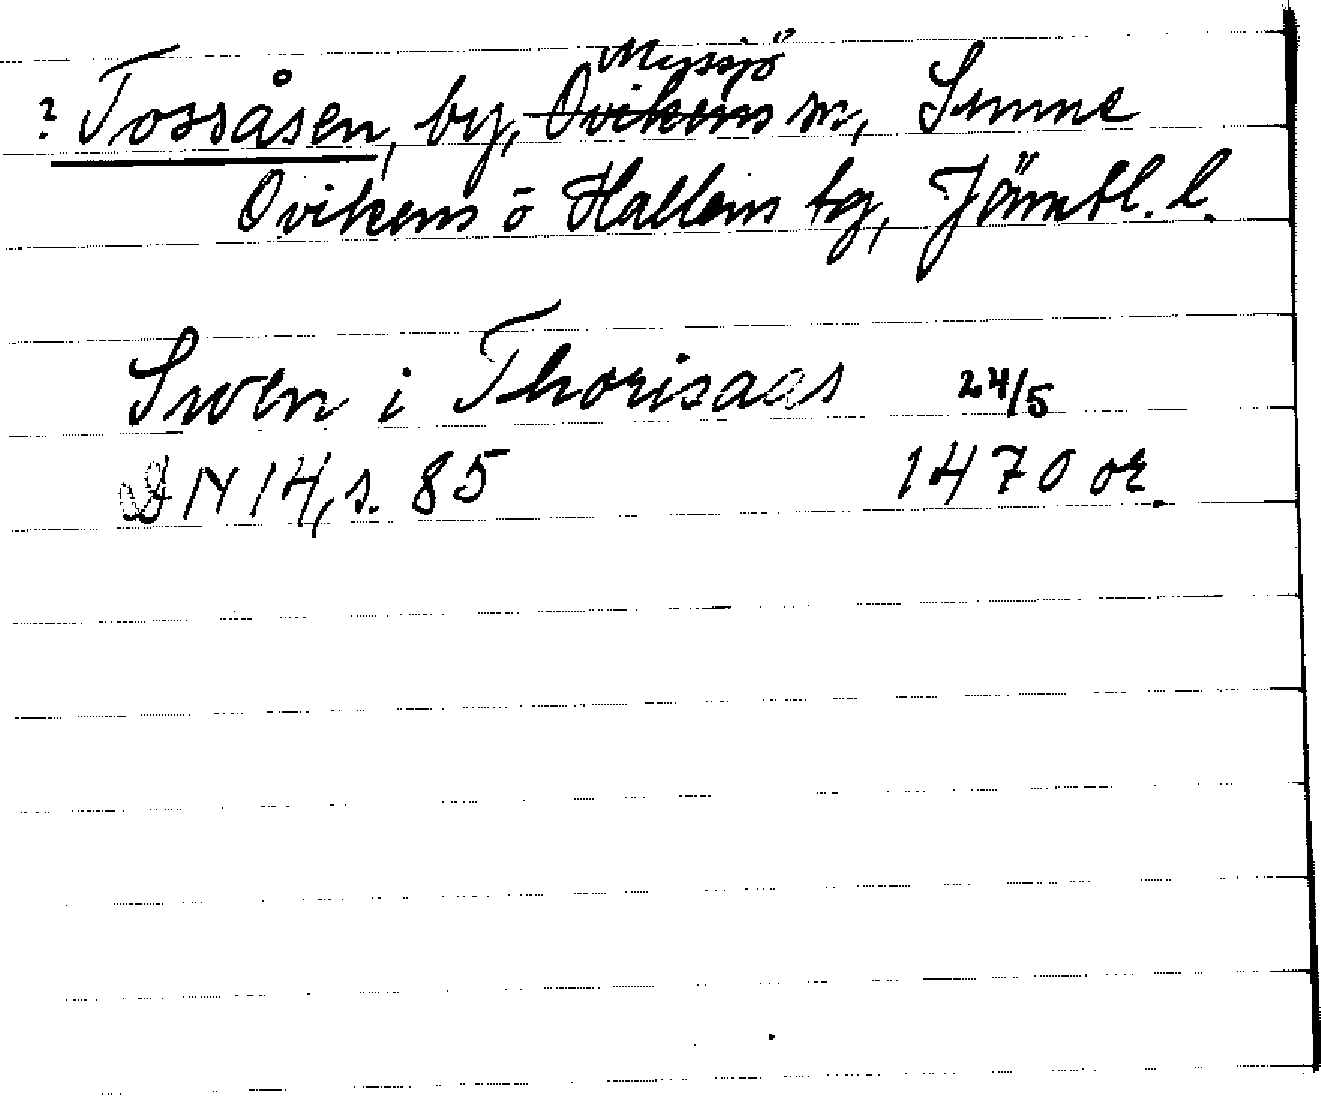 Myssjö
? Tossåsen, by, Ovikens sn, Sunne
Ovikens o Hallens tg, Jämtl. l.
Swen i Thorisaas 24/5
DN 14, s. 85 1470 or.